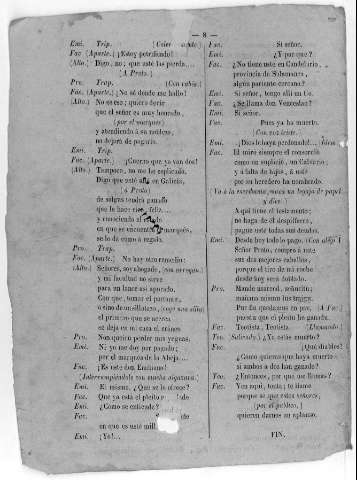 — 8 —
Emi. Trip.
Fac (Aparte.) ¡Estoy petrificado!
(Alto.) Digo, no; que este las pierda...
(A Prato.)
Pro. Trap. (Con rabia.)
Fac. (Aparte.) ¡No sé donde me hallo!
(Alto.) No es eso; quiero decir
que el señor es muy honrado,
(por el marques)
y atendiendo á su nobleza,
no dejará de pagarle.
Emi. Trip.
Fac. (Aparte.) ¡Cuerno que ya van dos!
(Alto.) Tampoco, no me he esplicado.
Digo que este allá en Galicia,
(á Prato)
de sobras tendrá ganado
que le hace rico, feliz....
y conociendo el
en que se encuentra marqués,
se lo da como á regalo.
Pro. Trap.
Fac. (Aparte.) No hay otro remedio:
(Alto.) Señores, soy abogado,
y mi facultad no sirve
para un lance así apurado.
Con que, tomar el portante,
el primero que se acerca
se deja en mi casa el cráneo
Pro. Non quería perder mis yeguas.
Emi. Ni yo me doy por pagado;
por el marqués de la Abeja....
Fac. ¡Es este don Emiliano!
(Interrumpiéndole con mucha algazara.)
Emi. El mismo. ¿Qué se le ofrece?
Fac. Que ya está el pleito de
Emi. ¿Cómo se entiende?
Fac. Sr.
en que es usté mill
Emi. ¡Yo!...
Fac. Si señor.
Emi. ¿Y por que?
Fac. ¿No tiene usté en Candelario
provincia de Salamanca,
algun pariente cercano?
Emi. Si señor, tengo allí un tio.
Fac. ¿Se llama don Venceslao?
Emi. Si señor.
Fac. Pues ya ha muerto.
Emi. ¡Dios le haya perdonado!...
Fac. El mire siempre el consorcio
como un suplicio, un Calvario;
y á falta de hijos, á usté
por su heredero ha nombrado.
(Va á la escribania, saca un legajo de papel
y dice.)
Aquí tiene el testamento;
no haga de él despilfarro,
pague usté todas sus deudas.
Emi. Desde hoy todo lo pago. (Con alegría)
Señor Prato, compro á usté
sus dos mejores caballos,
porque el tiro de mi coche
desde hoy será doblado.
Pro. Mande userced, señoritu;
mañana mismo los traigu.
Por fin quedamos en paz, (A Fac.)
puesto que el pleito he ganado.
Fac. Teotista, Teotista. (Llamando.)
Teo. Saliendo.) ¿Ya estás muerto?
Fac. ¡Qué diablos!
¿Cómo quieres que haya muerto
si ambos á dos han ganado?
Teo. ¿Entonces, por qué me llamas?
Fac. Ven aquí, tonta; te llamo
porque se que estos señores,
(por el público.)
quieren darnos su aplauso.
FIN.